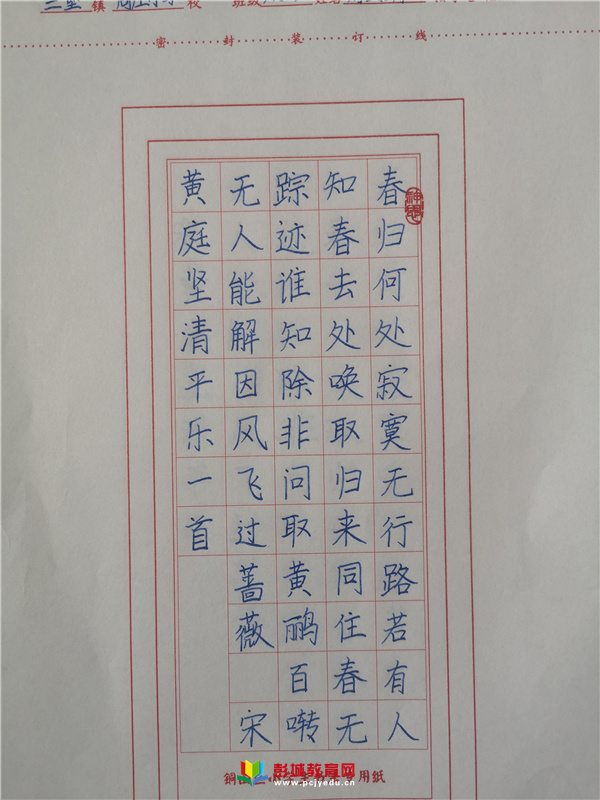 镇 校 班级
密 封 装 订 线
春归何处寂寞无行路若有人
知春去处唤取归来同住春无
踪迹谁知除非问取黄鹂百啭
无人能解因风飞过蔷薇 宋
黄庭坚清平乐一首
用纸
彭城教育网
www.pcjyedu.cn